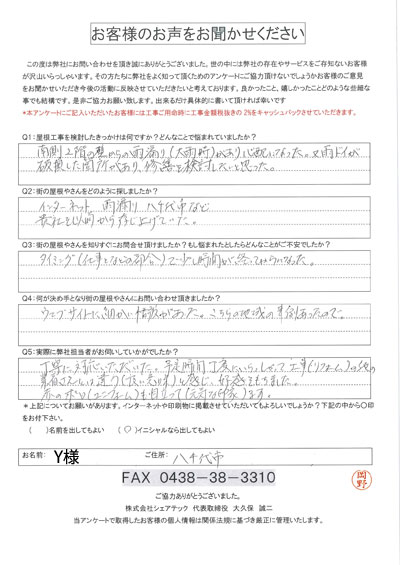 お客様のお声をお聞かせください
この度は弊社にお問い合わせを頂き誠にありがとうございました。世の中には弊社の存在やサービスをご存知ないお客様
が沢山いらっしゃいます。その方たちに弊社をよく知って頂くためのアンケートにご協力頂けないでしょうかお客様のご意見
をお聞かせいただき今後の活動に反映させていただきたいと考えております。良かったこと、嬉しかったことどのような些細な
事でも結構です。是非ご協力お願い致します。出来るだけ具体的に書いて頂ければ幸いです
*本アンケートにご記入いただいたお客様には工事ご用命時に工事金額税抜きの2%をキャッシュバックさせていただきます。
Q1:屋根工事を検討したきっかけは何ですか?どんなことで悩まれていましたか?
南側2階の壁からの雨漏り(大雨時)があり心配になった。又雨ドイが
破損した箇所があり、修繕を検討したいと思った。
Q2:街の屋根やさんをどのように探しましたか?
インターネット 雨漏り 八千代市など
貴社をじ前から存じ上げていた。
Q3:街の屋根やさんを知りすぐにお問合せ頂けましたか?もし悩まれたとしたらどんなことがご不安でしたか?
タイミング(仕事などの都合)で少し時間が経ってからになった。
Q4:何が決め手となり街の屋根やさんにお問い合わせ頂きましたか?
ウェブサイトに細かい情報があった。こちらの地域の事例もあったので。
Q5:実際に弊社担当者がお伺いしていかがでしたか?
丁寧に対応いただいた。予定時間丁度にいらっしゃって工事(リフォーム)の他の
業者さんとは違う(良い意味)を感じ、好感をもちました。
赤の (ユニフォーム)も目立って(元気な印象)ます。
*上記についてお願いがあります。インターネットや印刷物に掲載させていただいてもよろしいでしょうか?下記の中から〇印
をお付下さい。
( )名前を出してもよい (〇)イニシャルなら出してもよい
お名前: Y様 ご住所: 八千代市
岡野
FAX 0438-38-3310
ご協力ありがとうございました。
株式会社シェアテック 代表取締役 大久保 誠二
当アンケートで取得したお客様の個人情報は関係法規に基づき厳正に管理いたします。